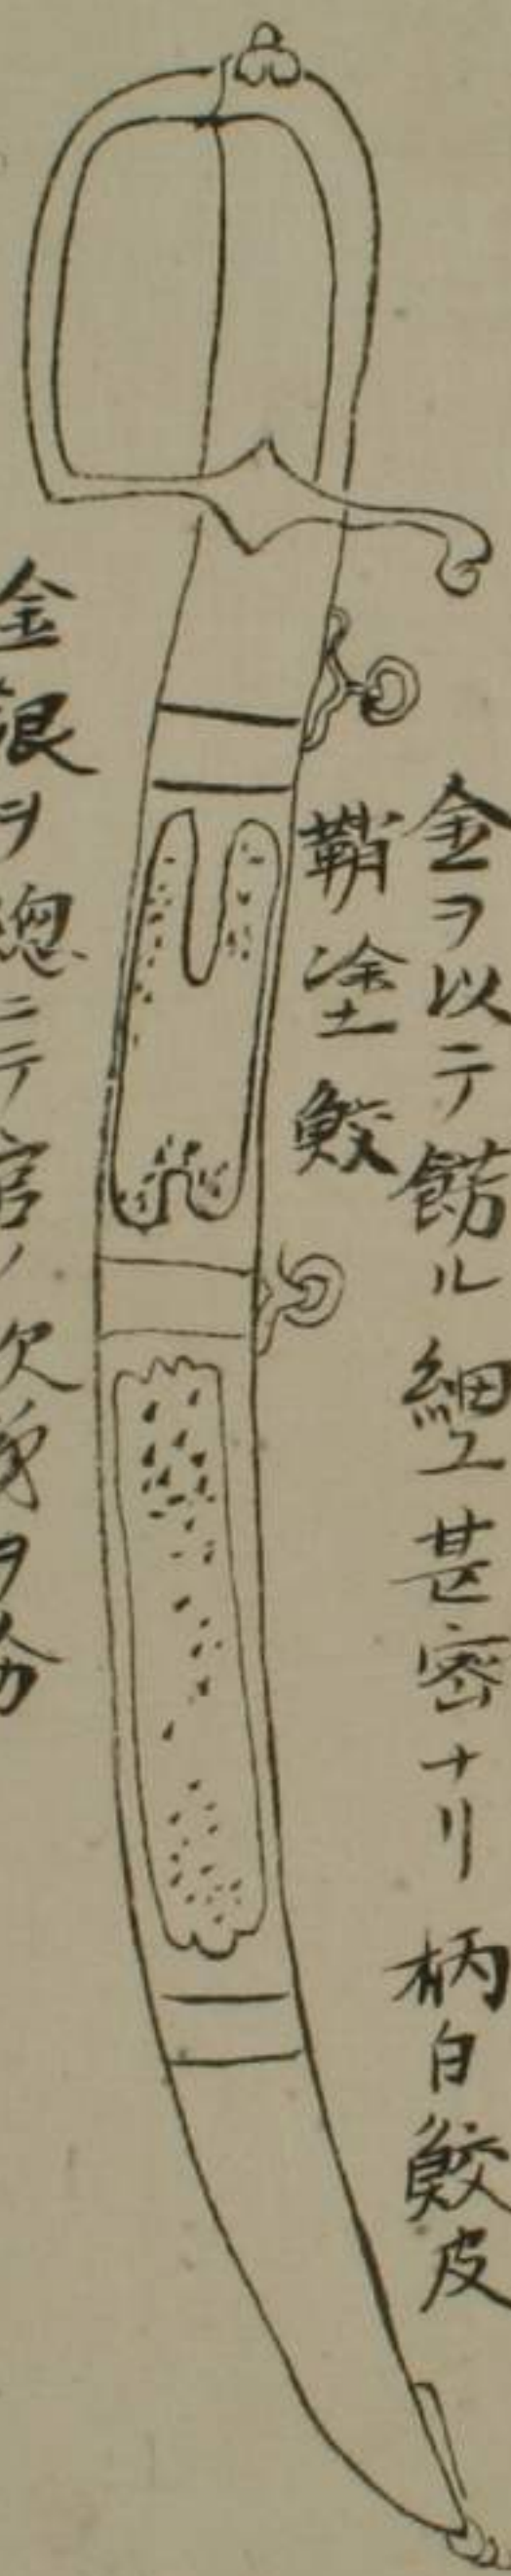 金ヲ以テ餝ル細工甚密ナリ柄白鮫皮
鞘塗鮫
金銀ヲ總ニテ官ノ次第ヲ分